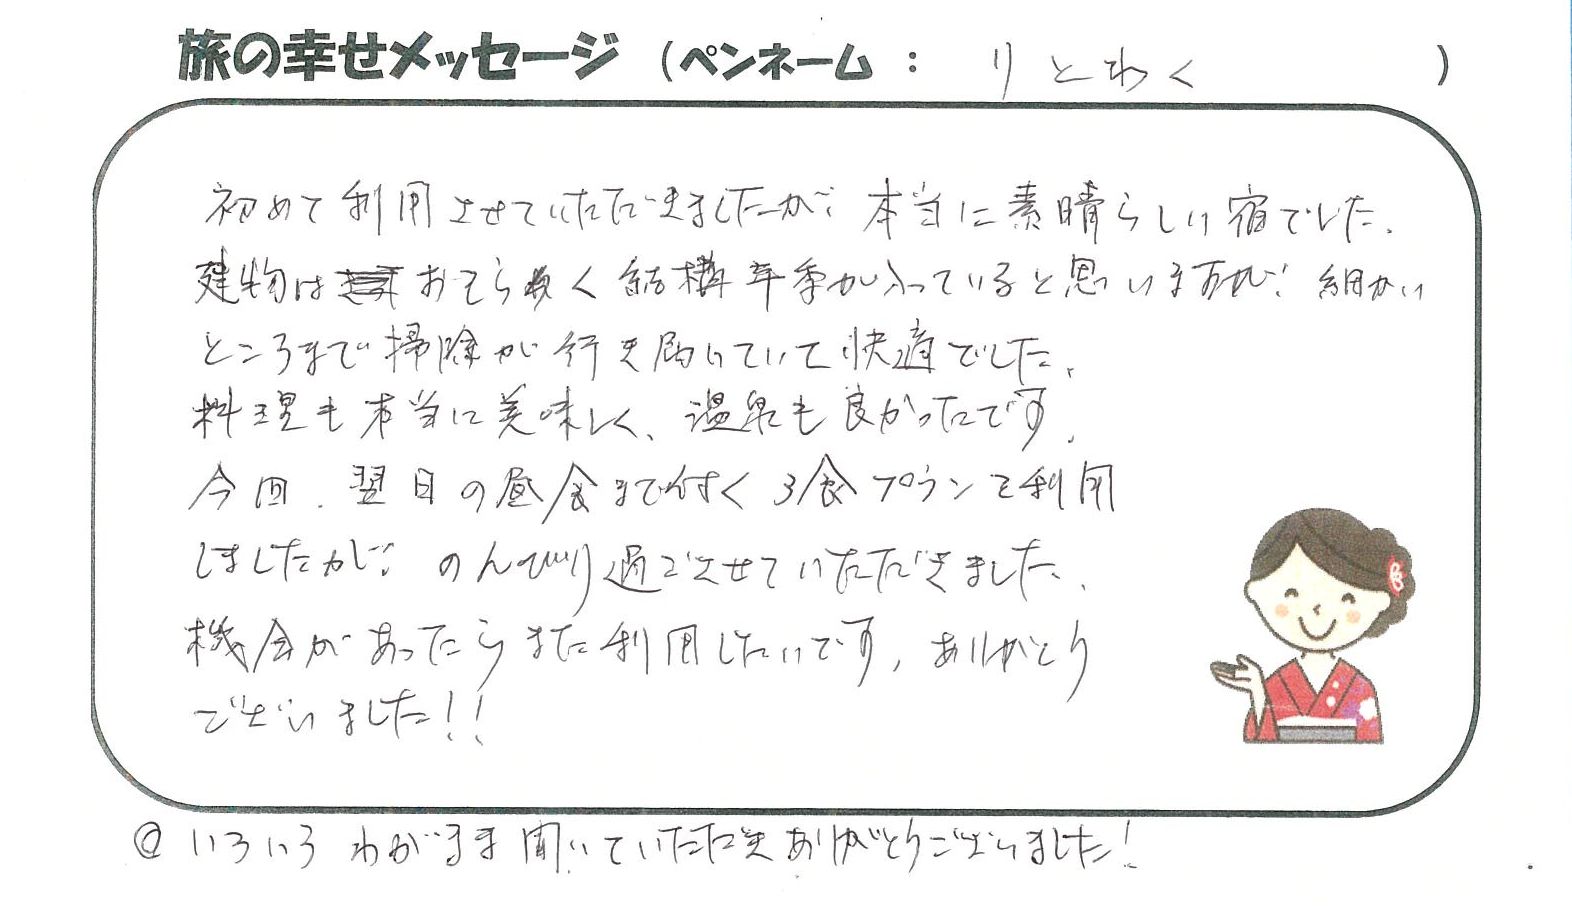 旅の幸せメッセージ （ペンネーム ： りとわく ）
初めて利用させていただきましたが、本当に素晴らしい宿でした。
建物は おそらく結構年季が入っていると思いますが、細かい
ところまで掃除が行き届いていて快適でした。
料理も本当に美味しく、温泉も良かったです。
今回、翌日の昼食まで付く3食プランを利用
しましたが、のんびり過ごさせていただきました。
機会があったらまた利用したいです。ありがとう
ございました!!
◎いろいろわがまま聞いていただきありがとうございました!